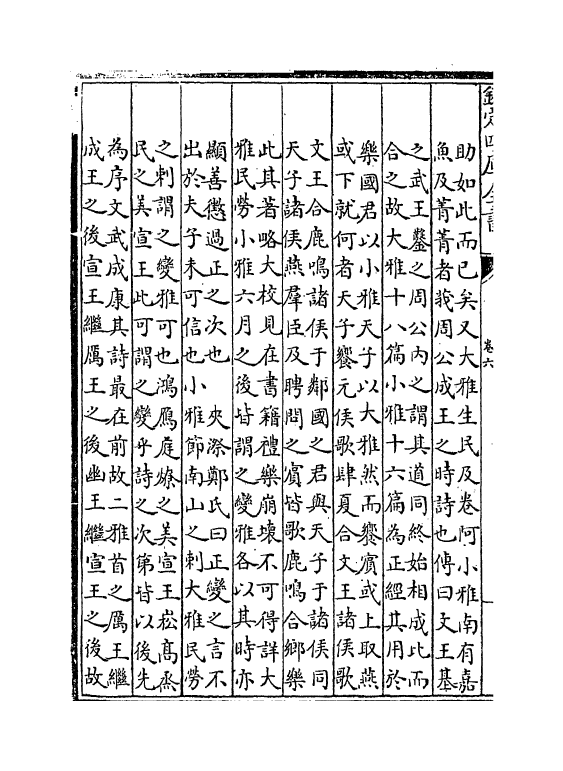 欽定四庫全書
卷六
助如此而已矣又大雅生民及卷阿小雅南有嘉
魚及菁菁者莪周公成王之時詩也傳曰文王基
之武王鑿之周公内之謂其道同終始相成比而
合之故大雅十八篇小雅十六篇為正經其用於
樂國君以小雅天子以大雅然而饗賓或上取燕
或下就何者天子饗元侯歌肆夏合文王諸侯歌
文王合鹿鳴諸侯于鄰國之君與天子于諸侯同
天子諸侯燕羣臣及聘問之賓皆歌鹿鳴合鄉樂
此其著略大校見在書籍禮樂崩壞不可得詳大
雅民勞小雅六月之後皆謂之變雅各以其時亦
顯善懲過正之次也　夾漈鄭氏曰正變之言不
出於夫子未可信也小雅節南山之刺大雅民勞
之刺謂之變雅可也鴻鴈庭燎之美宣王崧高烝
民之美宣王此可謂之變乎詩之次第皆以後先
為序文武成康其詩最在前故二雅首之厲王繼
成王之後宣王繼厲王之後幽王繼宣王之後故